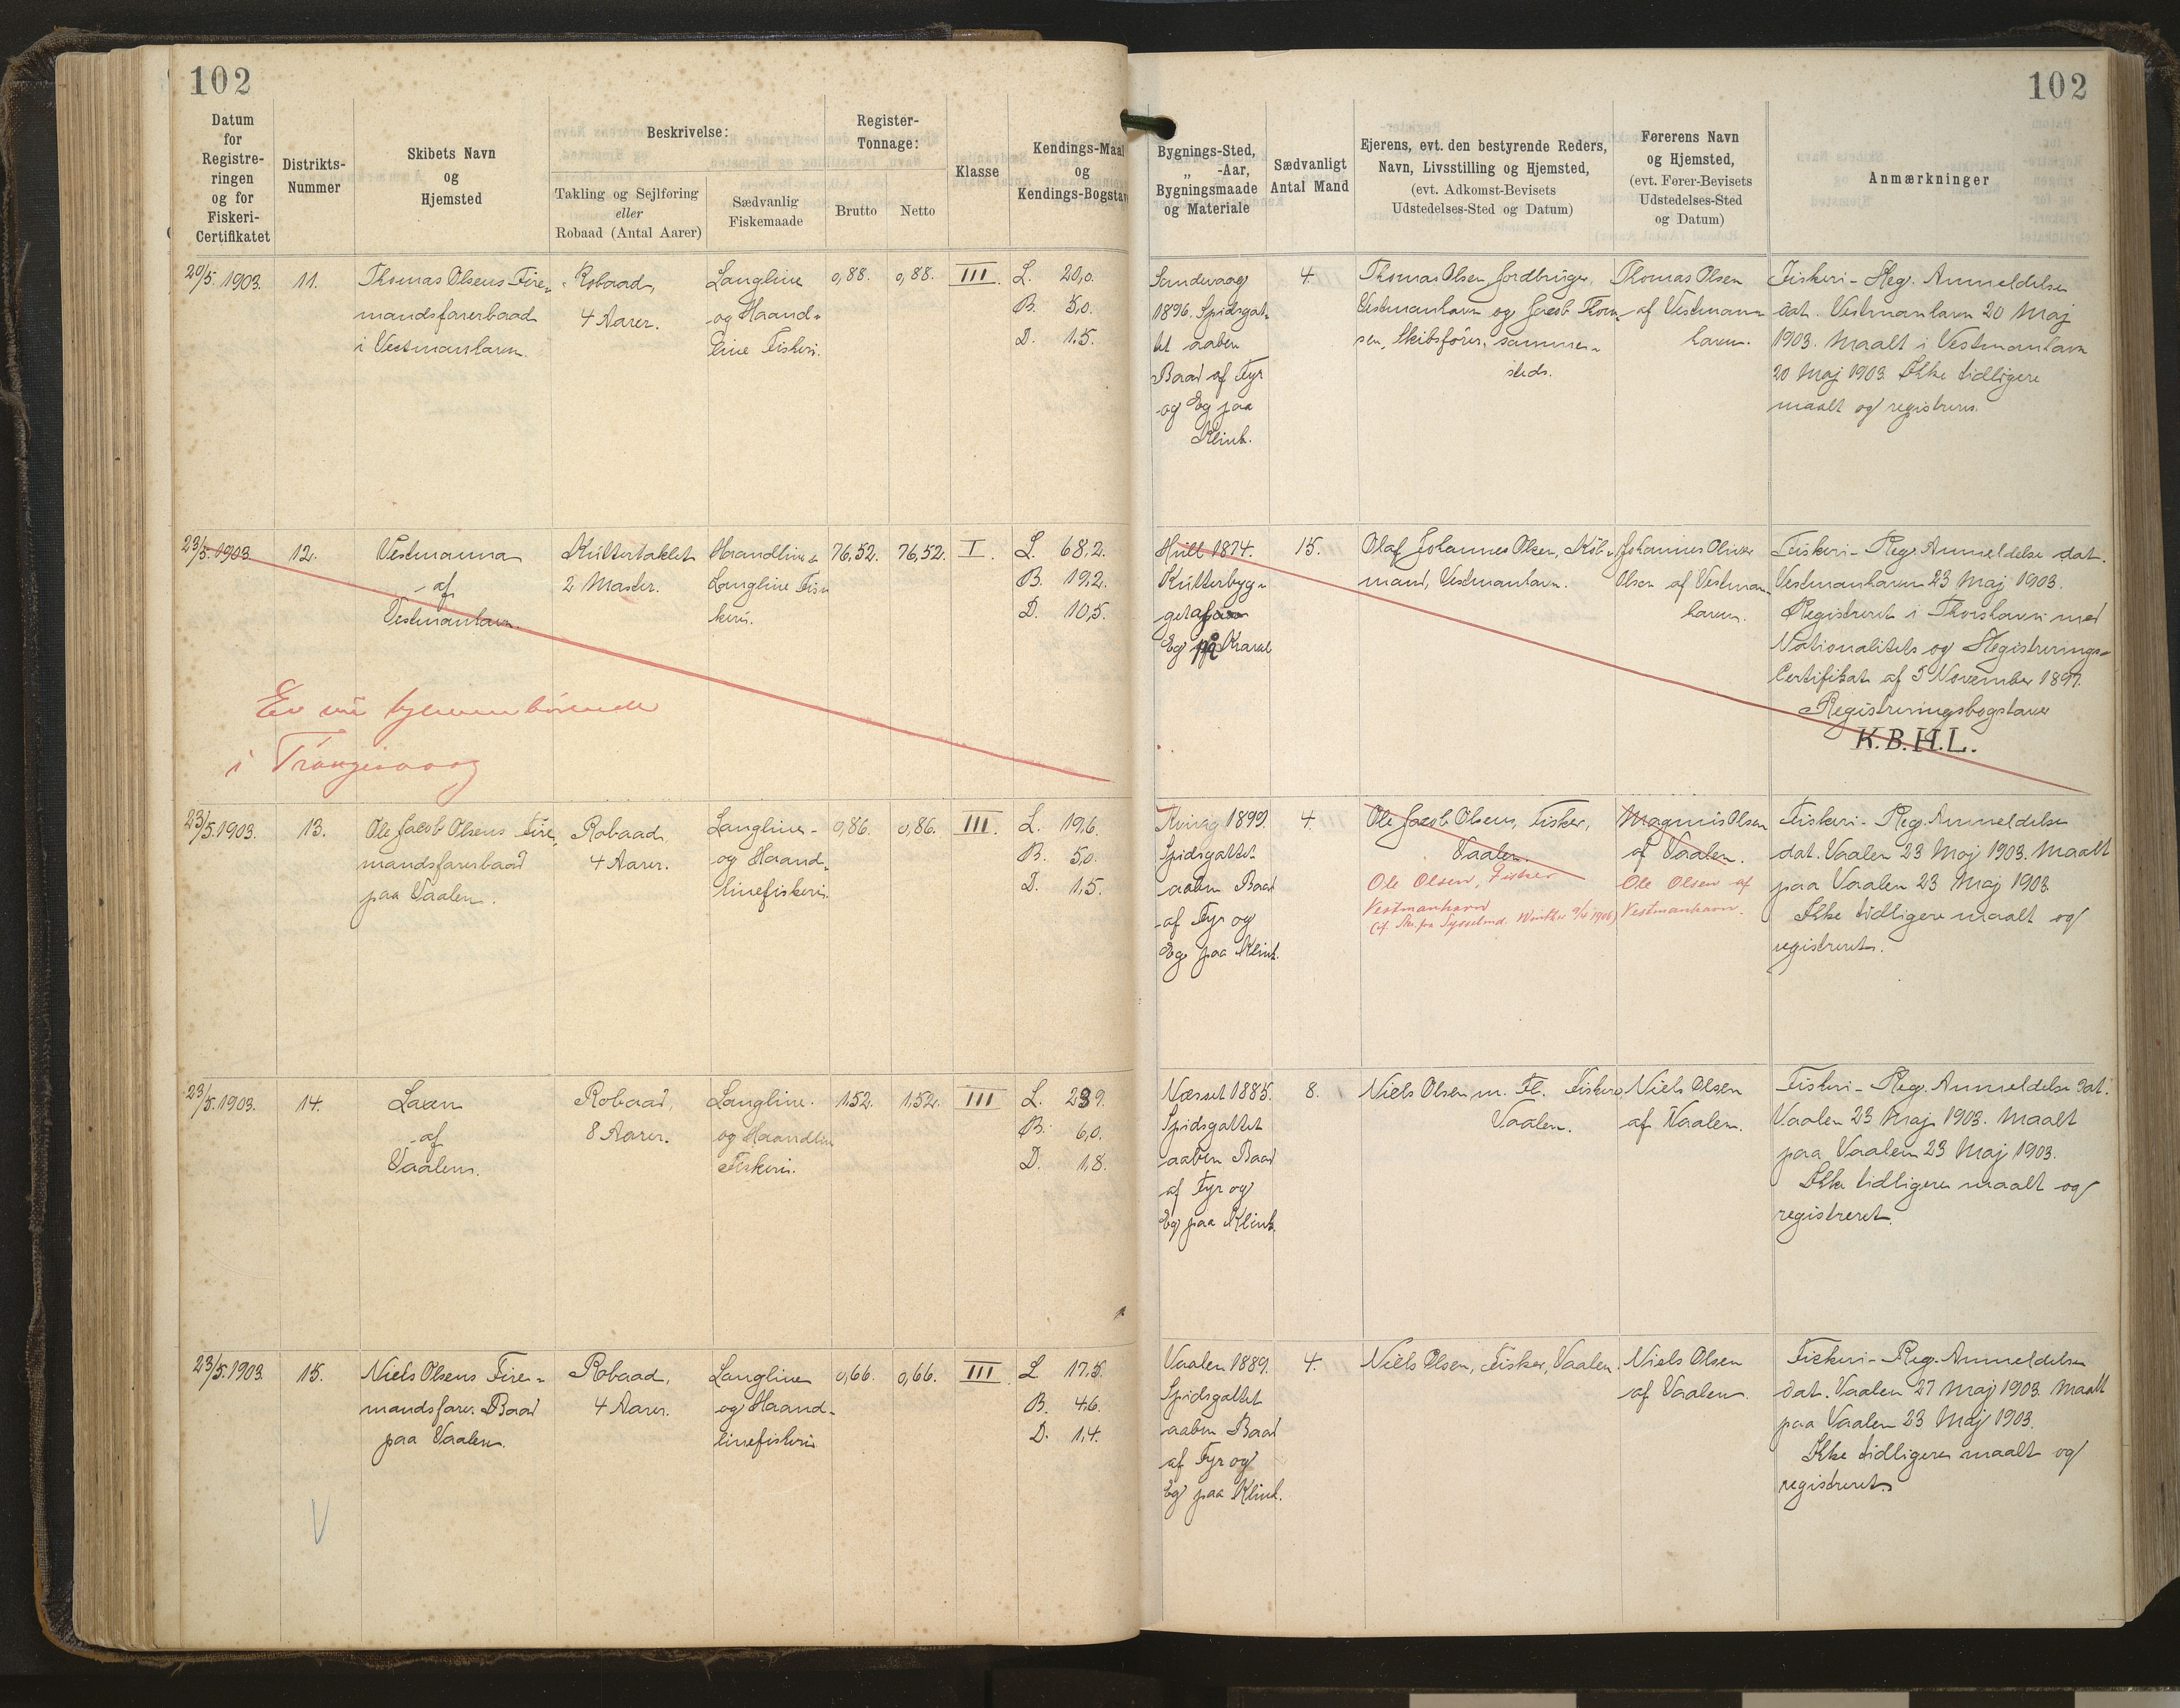 102
102
Datum
for
Registre-
ringen
og for
Fiskeri-
Certifikatet
Distrikts-
Nummer
Skibets Navn
og
Hjemsted
Beskrivelse:
Takling og Sejlføring
eller
Robaad (Antal Aarer)
Sædvanlig
Fiskemaade
Register-
Tonnage:
Brutto
Netto
Klasse
Kendings-Maal
og
Kendings-Bogstav
Bygnings-Sted,
„ -Aar,
Bygningsmaade
og Materiale
Sædvanligt
Antal Mand
Ejerens, evt. den bestyrende Reders,
Navn, Livsstilling og Hjemsted,
(evt. Adkomst-Bevisets
Udstedelses-Sted og Datum)
Førerens Navn
og Hjemsted,
(evt. Fører-Bevisets
Udstedelses-Sted
og Datum)
Anmærkninger
20/5. 1903.
11.
Thomas Olsens Fire-
mandsfarerbaad
i Vestmanhavn.
Robaad,
4 Aarer.
Langline
og Haand-
line Fiskeri.
0,88.
0,88.
III.
L. 20,0.
B. 5,0.
D. 1,5.
Sandvaag
1896. Spidsgat-
tet aaben
Baad af Fyr
og Eg paa
Klink.
4.
Thomas Olsen, Jordbruger,
Vestmanhavn og Jacob Thom-
sen, Skibsfører, sammen-
steds.
Thomas Olsen
af Vestman-
havn.
Fiskeri-Reg. Anmeldelse
dat. Vestmanhavn 20 Maj
1903. Maalt i Vestmanhavn
20 Maj 1903. Ikke tidligere
maalt og registreret.
23/5. 1903.
12.
Vestmanna
af
Vestmanhavn.
Kuttertaklet
2 Master.
Haandline &
Langline Fis-
keri.
76,52.
76,52.
I.
L. 68,2.
B. 19,2.
D. 10,5.
Hull 1874.
Kutterbyg-
get af
Eg på Kravel
15.
Olaf Johannes Olsen, Køb-
mand, Vestmanhavn.
Johannes Oliver
Olsen af Vestman-
havn.
Fiskeri-Reg. Anmeldelse dat.
Vestmanhavn 23 Maj 1903.
Registreret i Thorshavn med
Nationalitets og Registrerings-
Certifikat af 5 November 1897.
Registreringsbogstaver
K.B.H.L.
Er nu hjemmehörende
i Trangisvaag
23/5. 1903.
13.
Ole Jacob Olsens Fire-
mandsfarerbaad
paa Vaalen.
Robaad
4 Aarer.
Langline-
og Haand-
linefiskeri.
0,86.
0,86.
III.
L. 19,6.
B. 5,0.
D. 1,5.
Kvivig 1899.
Spidsgattet
aaben Baad
af Fyr og
Eg paa Klink.
4.
Ole Jacob Olsen, Fisker,
Vaalen.
Ole Olsen, Fisker
Vestmanhavn
(cf. Skr. fra Sysselmd. Winther 9/4 1906)
Magnus Olsen
af Vaalen.
Ole Olsen af
Vestmanhavn.
Fiskeri-Reg. Anmeldelse
dat. Vaalen 23 Maj 1903. Maalt
paa Vaalen 23 Maj 1903
Ikke tidligere maalt og
registreret.
23/5. 1903.
14.
Laxen
af
Vaalen.
Robaad,
8 Aarer.
Langline-
og Haandline
Fiskeri.
1,52.
1,52.
III
L. 23,9.
B. 6,0.
D. 1,8.
Næsset 1885.
Spidsgattet
aaben Baad
af Fyr og
Eg paa Klink.
8.
Niels Olsen m. Fl. Fiskere,
Vaalen.
Niels Olsen
af Vaalen.
Fiskeri-Reg. Anmeldelse dat.
Vaalen 23 Maj 1903. Maalt
paa Vaalen 23 Maj 1903.
Ikke tidligere maalt og
registreret.
23/5. 1903.
15.
Niels Olsens Fire-
mandsfarer Baad
paa Vaalen.
Robaad,
4 Aarer.
Langline
og Haand-
linefiskeri
0,66.
0,66.
III.
L 17,5.
B. 4,6.
D. 1,4.
Vaalen 1889.
Spidsgattet
aaben Baad
af Fyr og
Eg paa Klink.
4.
Niels Olsen, Fisker, Vaalen.
Niels Olsen
af Vaalen.
Fiskeri-Reg. Anmeldelse
dat. Vaalen 27 Maj 1903. Maalt
paa Vaalen 23 Maj 1903.
Ikke tidligere maalt og
registreret.